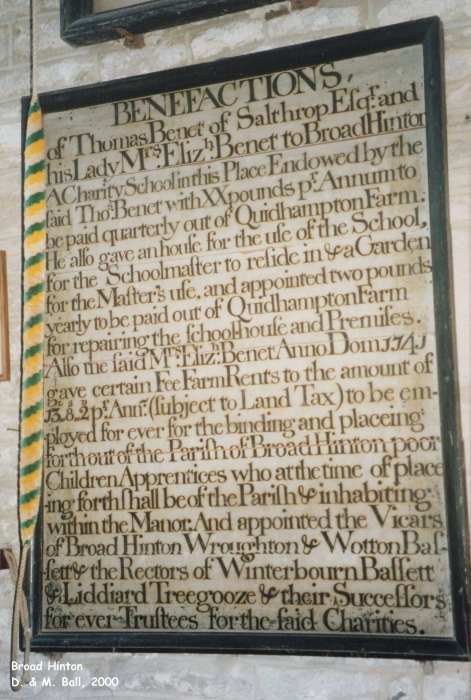 BENEFACTIONS,
of Thomas Benet of Salthrop Esqr. and
his Lady Mrs. Elizh. Benet to Broad Hinton
A Charity School in this Place Endowed by the
ſaid Thos. Benet with XX pounds pr. Annum to
be paid quarterly out of Quidhampton Farm.
He alſo gave an houſe for the uſe of the School,
for the Schoolmaſter to reſide in & a Garden
for the Maſter's uſe, and appointed two pounds
yearly to be paid out of Quidhampton Farm
for repairing the ſchoolhouſe and Premiſes.
Alſo the ſaid Mrs. Elizh. Benet Anno Dom 1741
gave certain Fee Farm Rents to the amount of
13.8.2 pr. Ann. (ſubject to Land Tax) to be em-
ployed for ever for the binding and placeing
forth out of the Pariſh of Broad Hinton poor
Children Apprentices who at the time of place
ing forth ſhall be of the Pariſh & inhabiting
within the Manor. And appointed the Vicars
of Broad Hinton Wroughton & Wotton Baſ-
ſett & the Rectors of Winterbourn Baſſett
& Liddiard Treegooze & their Succeſſors
for ever Truſtees for the ſaid Charities.
Broad Hinton
D. & M. Ball, 2000